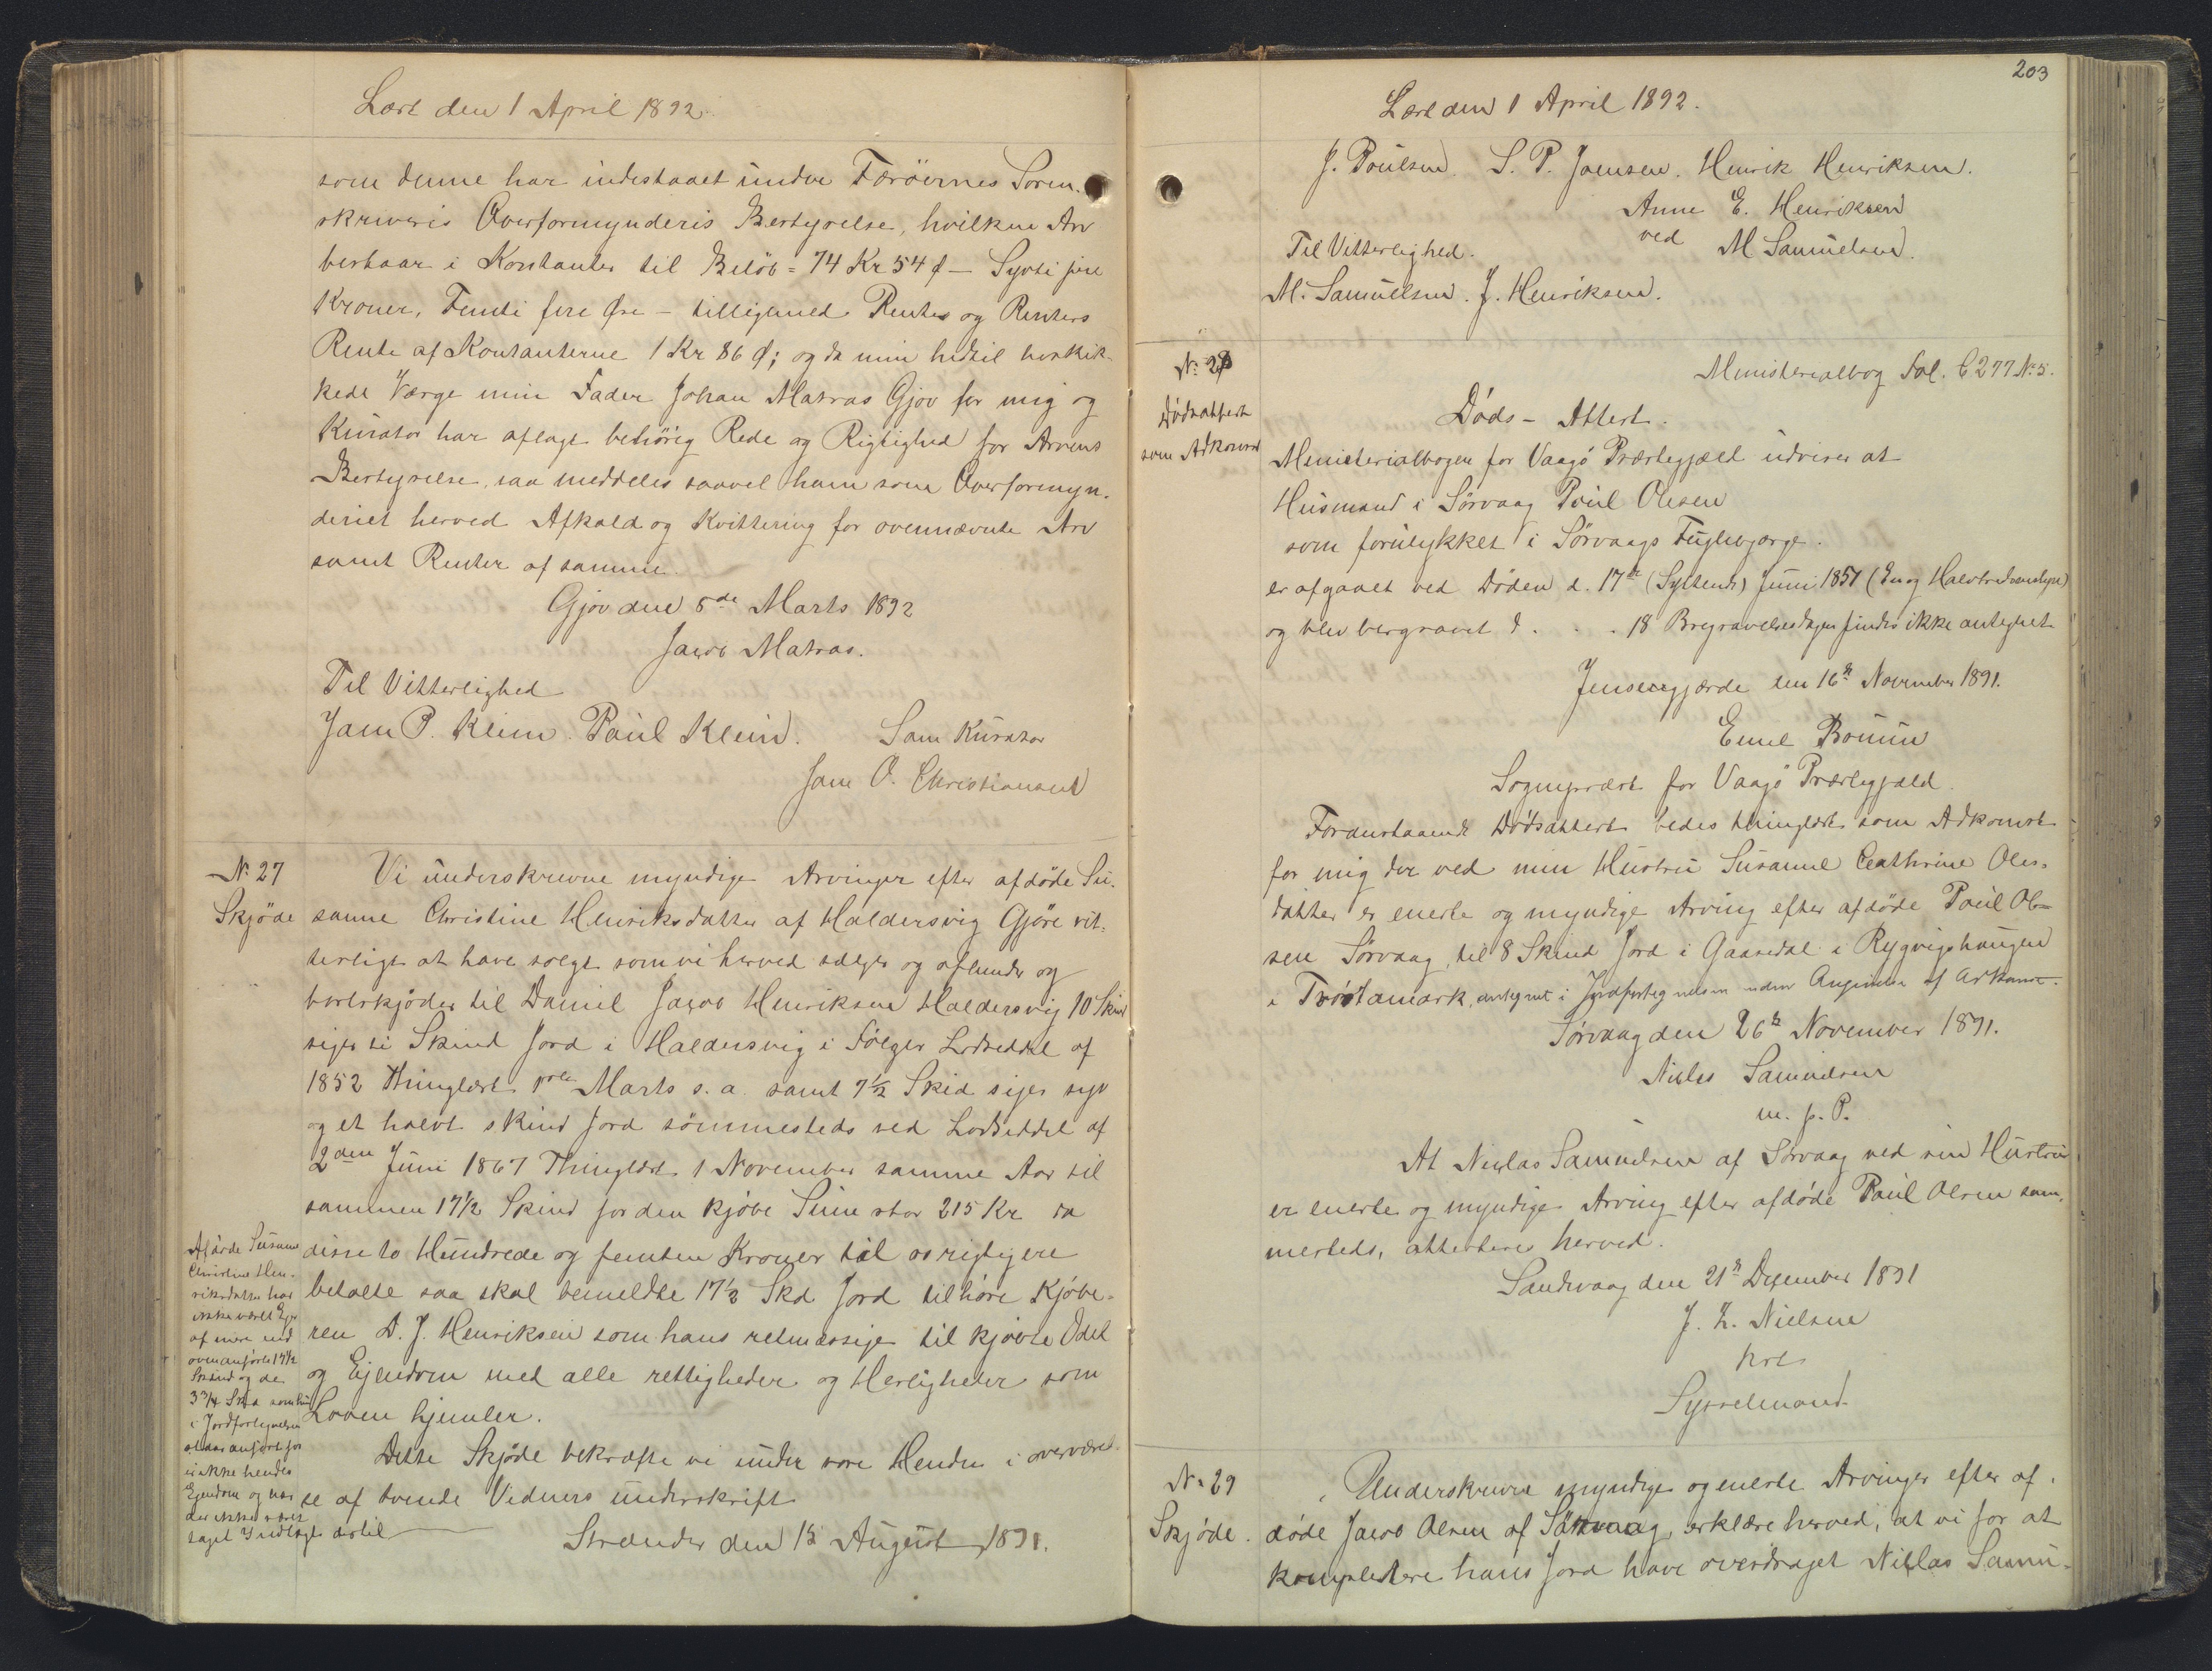 Læst den 1 April 1892.
som denne har indestaaet under Færöernes Soren-
skriveris Overformynderis Bestyrelse, hvilken Arv
bestaar i Kontanter til Belöb = 74 Kr 54 Ø — Syvti fire
Kroner, Femti fire Øre — tilligemed Rentes og Renters
Rente af Kontanterne 1 Kr 86 Ø; og da min hidtil havte
Værge min Fader Johan Matras Gjov for mig og
Kurator har aflagt behörig Rede og Rigtighed for Arvens
Bestyrelse, saa meddeles saavel ham som Overformyn-
deriet herved Afkald og Kvittering for ovennævnte Arv
samt Renter af samme.
Gjov den 5de Marts 1892
Jacob Matras.
Til Vitterlighed
Joen P. Klein. Paul Klein. Som Kurator
Joen O. Christiansen
№ 27
Skjöde
Vi underskrevne myndige Arvinger efter afdöde Su-
sanne Christine Henriksdatter af Haldersvig Gjöre vit-
terligt at have solgt som vi herved sælger og afhænder og
bortskjöder til Daniel Jacob Henriksen Haldersvig 10 Skind
siger ti Skind Jord i Haldersvig i Fölger Lodseddel af
1852 Thinglæst Marts s. a. samt 7½ Skid siger syv
og et halvt skind Jord sömmesteds ved Lodseddel af
2den Juni 1867 Thinglæst 1 November samme Aar til
sammen 17½ Skind for den kjöbe Sum stor 215 Kr da
disse to Hundrede og femten Kroner til os rigtigere
betalte saa skal bemeldte 17½ Skd Jord tilhöre Kjöbe-
ren D. J. Henriksen som hans retmæssige til kjöbte Odel
og Ejendom med alle rettigheder og Herligheder som
Loven hjemler.
Dette Skjöde bekræfte vi under vore Hender i overværel-
se af tvende Vidners underskrift
Strender den 15 August 1891.
Afdöde Susanne
Christine Hen-
riksdatter har
ikke været Ejer
af mere end
ovenanförte 17½
Skind og de
3¾ Skd som hun
i Jordfortegnelsen
staar anfört for
er ikke hendes
Ejendom og har
der ikke været
taget Indlægt dertil
203
Læst den 1 April 1892.
J. Poulsen. S. P. Joensen. Henrik Henriksen.
Anne E. Henriksen
ved M Samuelsen.
Til Vitterlighed.
M. Samuelsen. J. Henriksen.
№ 28
Dödsattest
som Adkomst
Ministerialbog Fol. C 277 № 5.
Döds - Attest.
Ministerialbogen for Vaagö Præstegjæld udviser at
Husmand i Sörvaag Poul Olesen
som forulykket i Sörvaags Fuglebjærge.
er afgaaet ved Döden d. 17de (Syttende) Juni 1851 (En og Halvtredsindstyve)
og blev begravet d . . . 18 Begravelsesdagen findes ikke antegnet
Jensegjærde den 16de November 1891.
Emil Bruun
Sognepræst for Vaagö Præstegjæld.
Foranstaaende Dödsattest bedes thinglæst som Adkomst
for mig der ved min Hustru Susanne Cathrine Oles-
datter er eneste og myndige Arving efter afdöde Poul Ol-
sen Sörvaag, til 8 Skind Jord i Gaasedal i Rygvigshaugen
i Tröstamark, antegnet i Jordfortegnelsen uden Angivelse af Adkomst.
Sörvaag den 26de November 1891.
Niclas Samuelsen
m. f. P.
At Niclas Samuelsen af Sörvaag ved sin Hustru
er eneste og myndige Arving efter afdöde Poul Olsen sam-
mesteds, attesteres herved.
Sandevaag den 21de Desember 1891
J. H. Nielsen
kst
Sysselmand
№ 29
Skjöde.
Underskrevne myndige og eneste Arvinger efter af-
döde Jacob Olsen af Sörvaag, erklære herved, at vi for at
kompletere hans Jord have overdraget Niclas Samu-